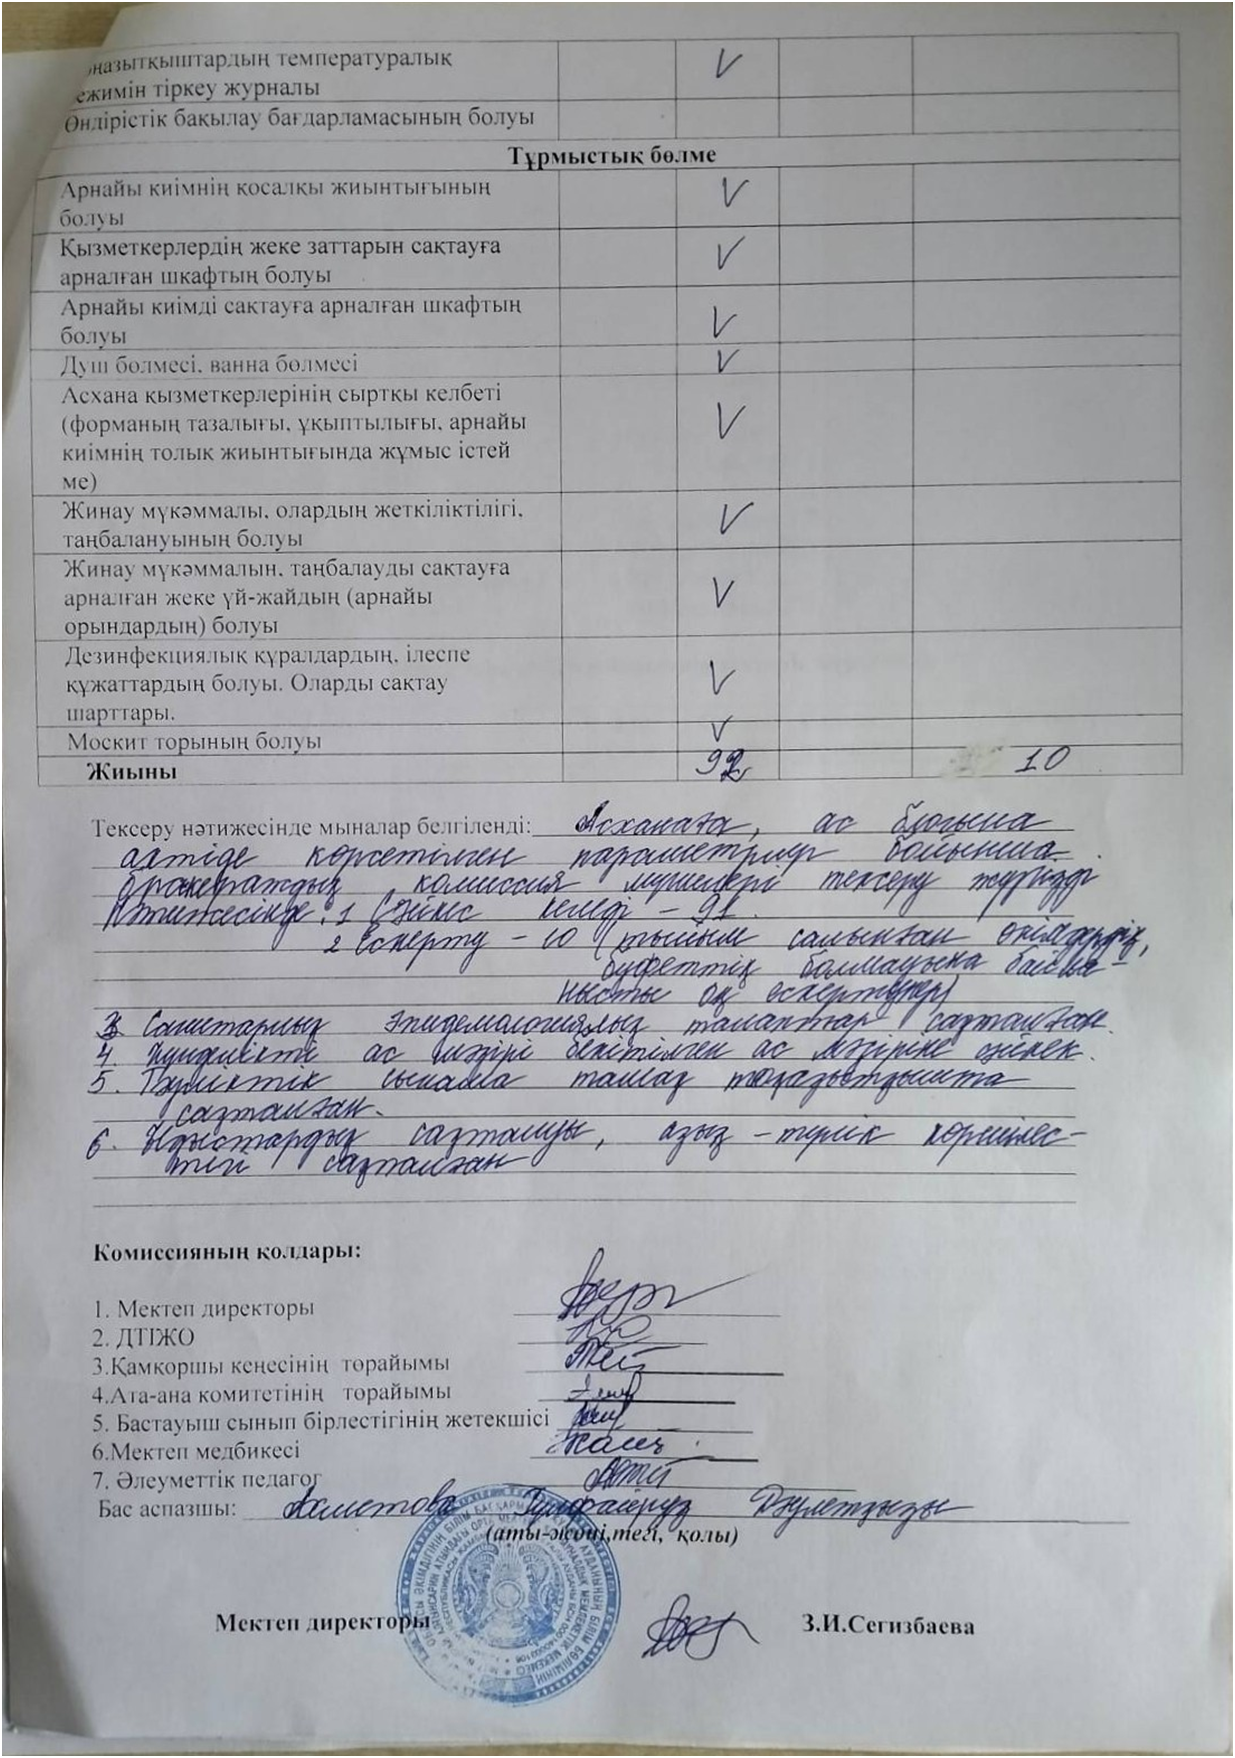 ңазытқыштардың температуралық V
ежимін тіркеу журналы
Өндірістік бақылау бағдарламасының болуы
Тұрмыстық бөлме
Арнайы киімнің қосалқы жиынтығының V
болуы
Қызметкерлердің жеке заттарын сақтауға V
арналған шкафтың болуы
Арнайы киімді сақтауға арналған шкафтың V
болуы
Душ бөлмесі, ванна бөлмесі V
Асхана қызметкерлерінің сыртқы келбеті
(форманың тазалығы, ұқыптылығы, арнайы V
киімнің толық жиынтығында жұмыс істей
ме)
Жинау мүкәммалы, олардың жеткіліктілігі, V
таңбалануының болуы
Жинау мүкәммалын, таңбалауды сақтауға
арналған жеке үй-жайдың (арнайы V
орындардың) болуы
Дезинфекциялық құралдардың, ілеспе
құжаттардың болуы. Оларды сақтау V
шарттары.
Москит торының болуы V
Жиыны 92 10
Тексеру нәтижесінде мыналар белгіленді: Асханаға, ас блогына
актіде көрсетілген параметрлер бойынша
бракераждық комиссия мүшелері тексеру жүргізді
Нәтижесінде: 1 Сәйкес келеді - 91.
2 Ескерту - 10 (тыйым салынған өнімдердің,
буфеттің болмауына байла-
нысты оң ескертулер)
3 Санитарлық эпидемологиялық талаптар сақталған.
4. Күнделікті ас мәзірі бекітілген ас мәзіріне сәйкес.
5. Тәуліктік сынама талап тоңазытқышта
сақталған.
6. Ыдыстардың сақталуы, азық-түлік көршілес-
тігі сақталған
Комиссияның қолдары:
1. Мектеп директоры
2. ДТІЖО
3.Қамқоршы кеңесінің торайымы
4.Ата-ана комитетінің торайымы
5. Бастауыш сынып бірлестігінің жетекшісі
6.Мектеп медбикесі
7. Әлеуметтік педагог
Бас аспазшы: Ахметова Гулфайруз Дәулетқызы
(аты-жөні,тегі, қолы)
Мектеп директоры З.И.Сегизбаева